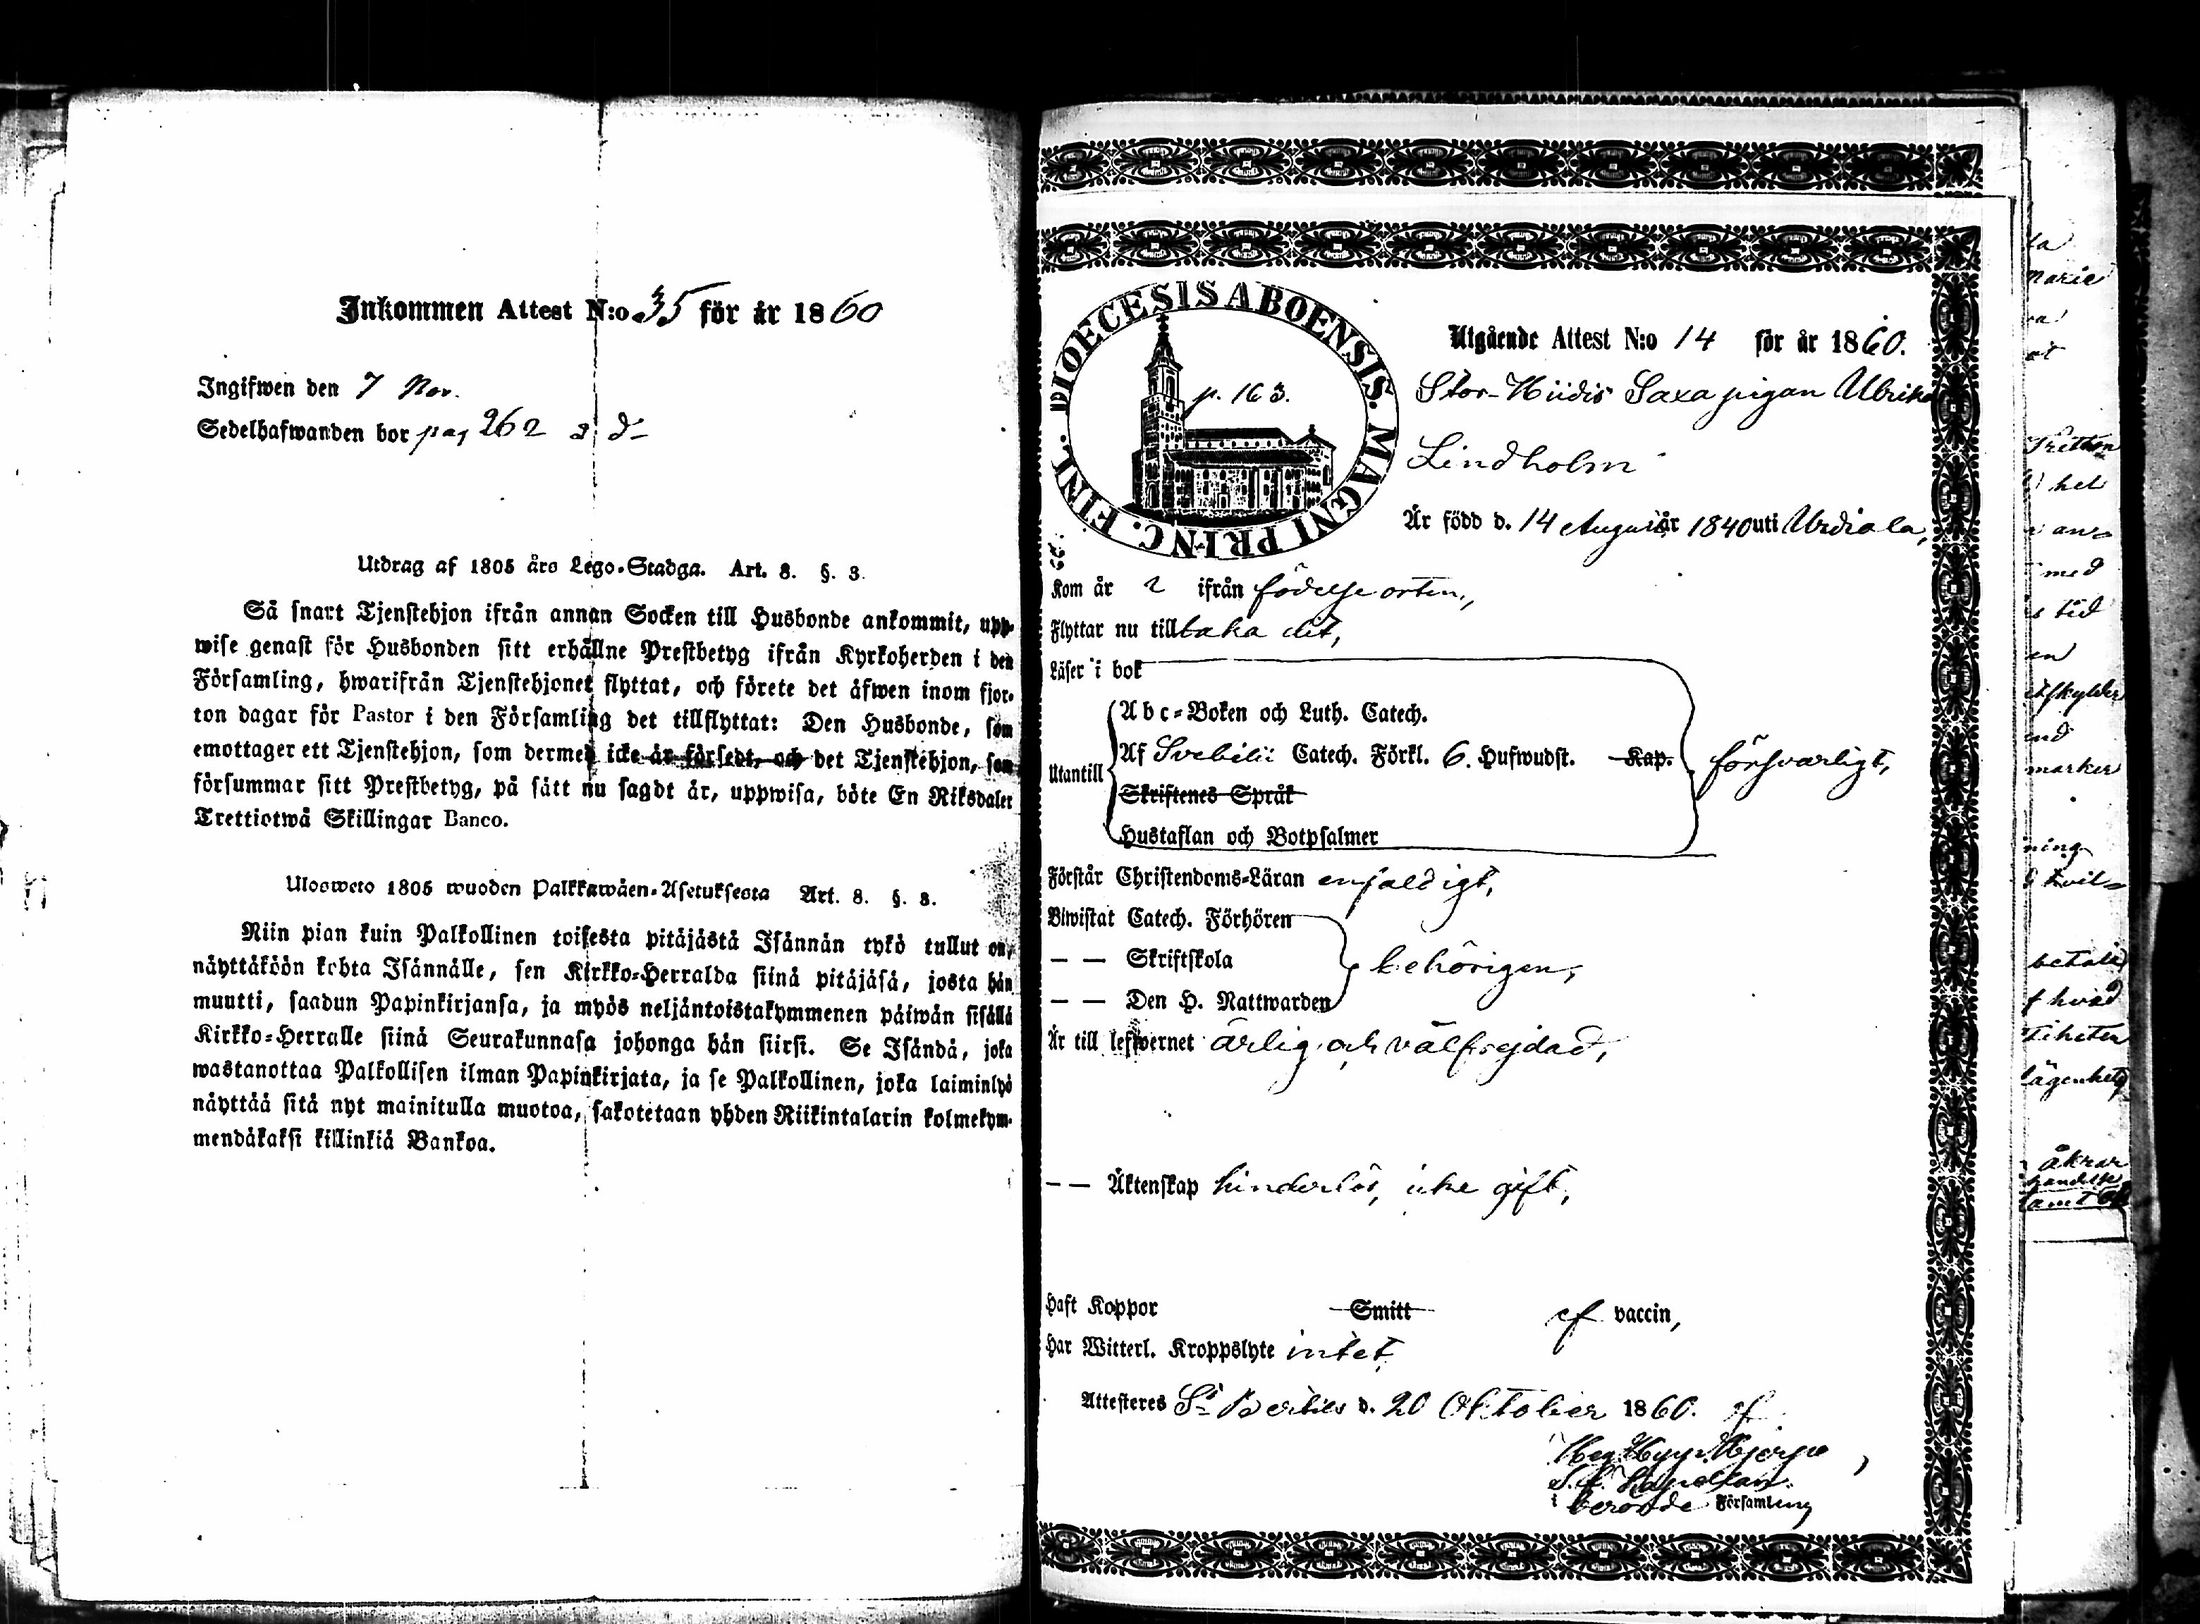 Inkommen Attest N:o 35 för år 1860
Ingifwen den 7 Nov.
Sedelhafwanden bor pag 262
Utdrag af 1805 års Lego-Stadga. Art. 8. §. 3.
Så snart Tjenstehjon ifrån annan Socken till Husbonde ankommit, upp-
wise genast för Husbonden sitt erhållne Prestbetyg ifrån Kyrkoherden i den
Församling, hwarifrån Tjenstehjonet flyttat, och förete det äfwen inom fjor-
ton dagar för Pastor i den Församling det tillflyttat: Den Husbonde, som
emottager ett Tjenstehjon, som dermed icke är försedt, och det Tjenstehjon, som
försummar sitt Prestbetyg, på sätt nu sagdt är, uppwisa, böte En Riksdaler
Trettiotwå Skillingar Banco.
Ulosweto 1805 wuoden Palkkawäen-Asetuksesta Art. 8. §. 3.
Niin pian kuin Palkollinen toisesta pitäjästä Isännän tykö tullut on,
näyttäköön kohta Isännälle, sen Kirkko-Herralda siinä pitäjäsä, josta hän
muutti, saadun Papinkirjansa, ja myös neljäntoistakymmenen päiwän sisällä
Kirkko-Herralle siinä Seurakunnasa johonga hän siirsi. Se Isändä, joka
wastanottaa Palkollisen ilman Papinkirjata, ja se Palkollinen, joka laiminlyö
näyttää sitä nyt mainitulla muotoa, sakotetaan yhden Riikintalarin kolmekym-
mendäkaksi killinkiä Bankoa.
DIOECESIS ABOENSIS. MAGNI PRINC. FINL.
p. 163.
Utgående Attest N:o 14 för år 1860.
Stor-Hiidis Saxa pigan Ulrika
Lindholm
Är född d. 14 Augusti år 1840 uti Urdiala,
Kom år 2 ifrån födelse orten,
Flyttar nu till baka dit,
Läser i bok
Utantill
Abc-Boken och Luth. Catech.
Af Svebilii Catech. Förkl. 6. Hufwudst. Kap.
Skriftenes Språk
Hustaflan och Botpsalmer
försvarligt,
Förstår Christendoms-Läran enfaldigt,
Biwistat Catech. Förhören
— — Skriftskola
— — Den H. Nattwarden
behörigen,
Är till lefwernet ärlig och välfrejdad,
— — Äktenskap hinderlös, icke gift,
Haft Koppor Smitt af vaccin,
Har Witterl. Kroppslyte intet,
Attesteres St Bertils d. 20 Oktober 1860. af
Kapellan
i berörde Församling